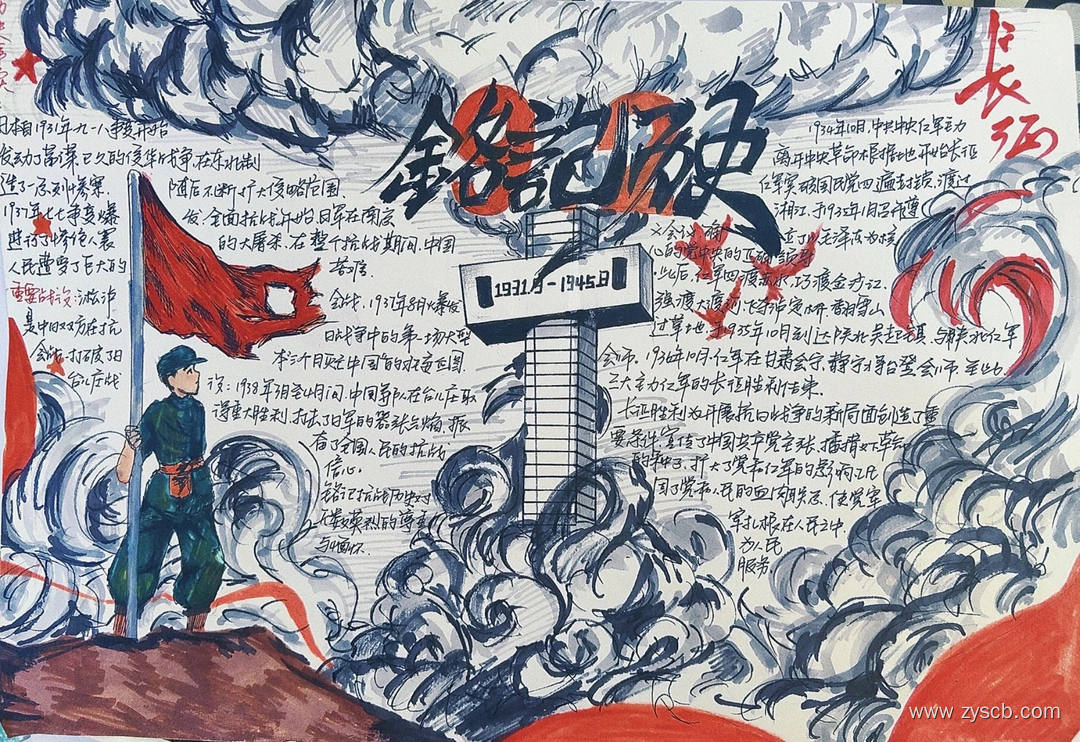 銘記历史
1931.9-1945.8
长征
日本自1931年九一八事变开始
发动了蓄谋已久的侵华战争,在东北制
造了一系列惨案.
随后不断扩大侵略范围
1937年七七事变爆
发,全面抗战开始,日军在南京
进行了惨绝人寰
的大屠杀.在整个抗战期间,中国
人民遭受了巨大的
苦难.
重要战役:淞沪
会战,1937年8月爆发
是中日双方在抗
日战争中的第一场大型
会战.打破了日
本三个月灭亡中国的
台儿庄战
役:1938年3月至4月间,中国军队在台儿庄取
得重大胜利,打击了日军的嚣张气焰,振
奋了全国人民的抗战
信心.
铭记抗战历史
英烈的尊重
与缅怀.
1934年10月,中共中央红军主力
离开中央革命根据地开始长征
红军突破国民党四道封锁,渡过
湘江,于1935年1月召开遵
义会议,确立了以毛泽东为核
心的党中央的正确领导
.此后,红军四渡赤水,巧渡金沙江.
强渡大渡河,飞夺泸定桥,翻雪山
过草地,于1935年10月到达陕北吴起镇,与陕北红军
会师,1936年10月,红军在甘肃会宁,静宁将台堡会师,至此
三大主力红军的长征胜利结束.
长征胜利为开展抗日战争的新局面创造了重
要条件,宣传了中国共产党主张,播撒下革命
的种子,扩大了党和红军的影响,巩
固了党和人民的血肉联系,使党牢
牢扎根在人民之中.
为人民
服务
www.zyscb.com